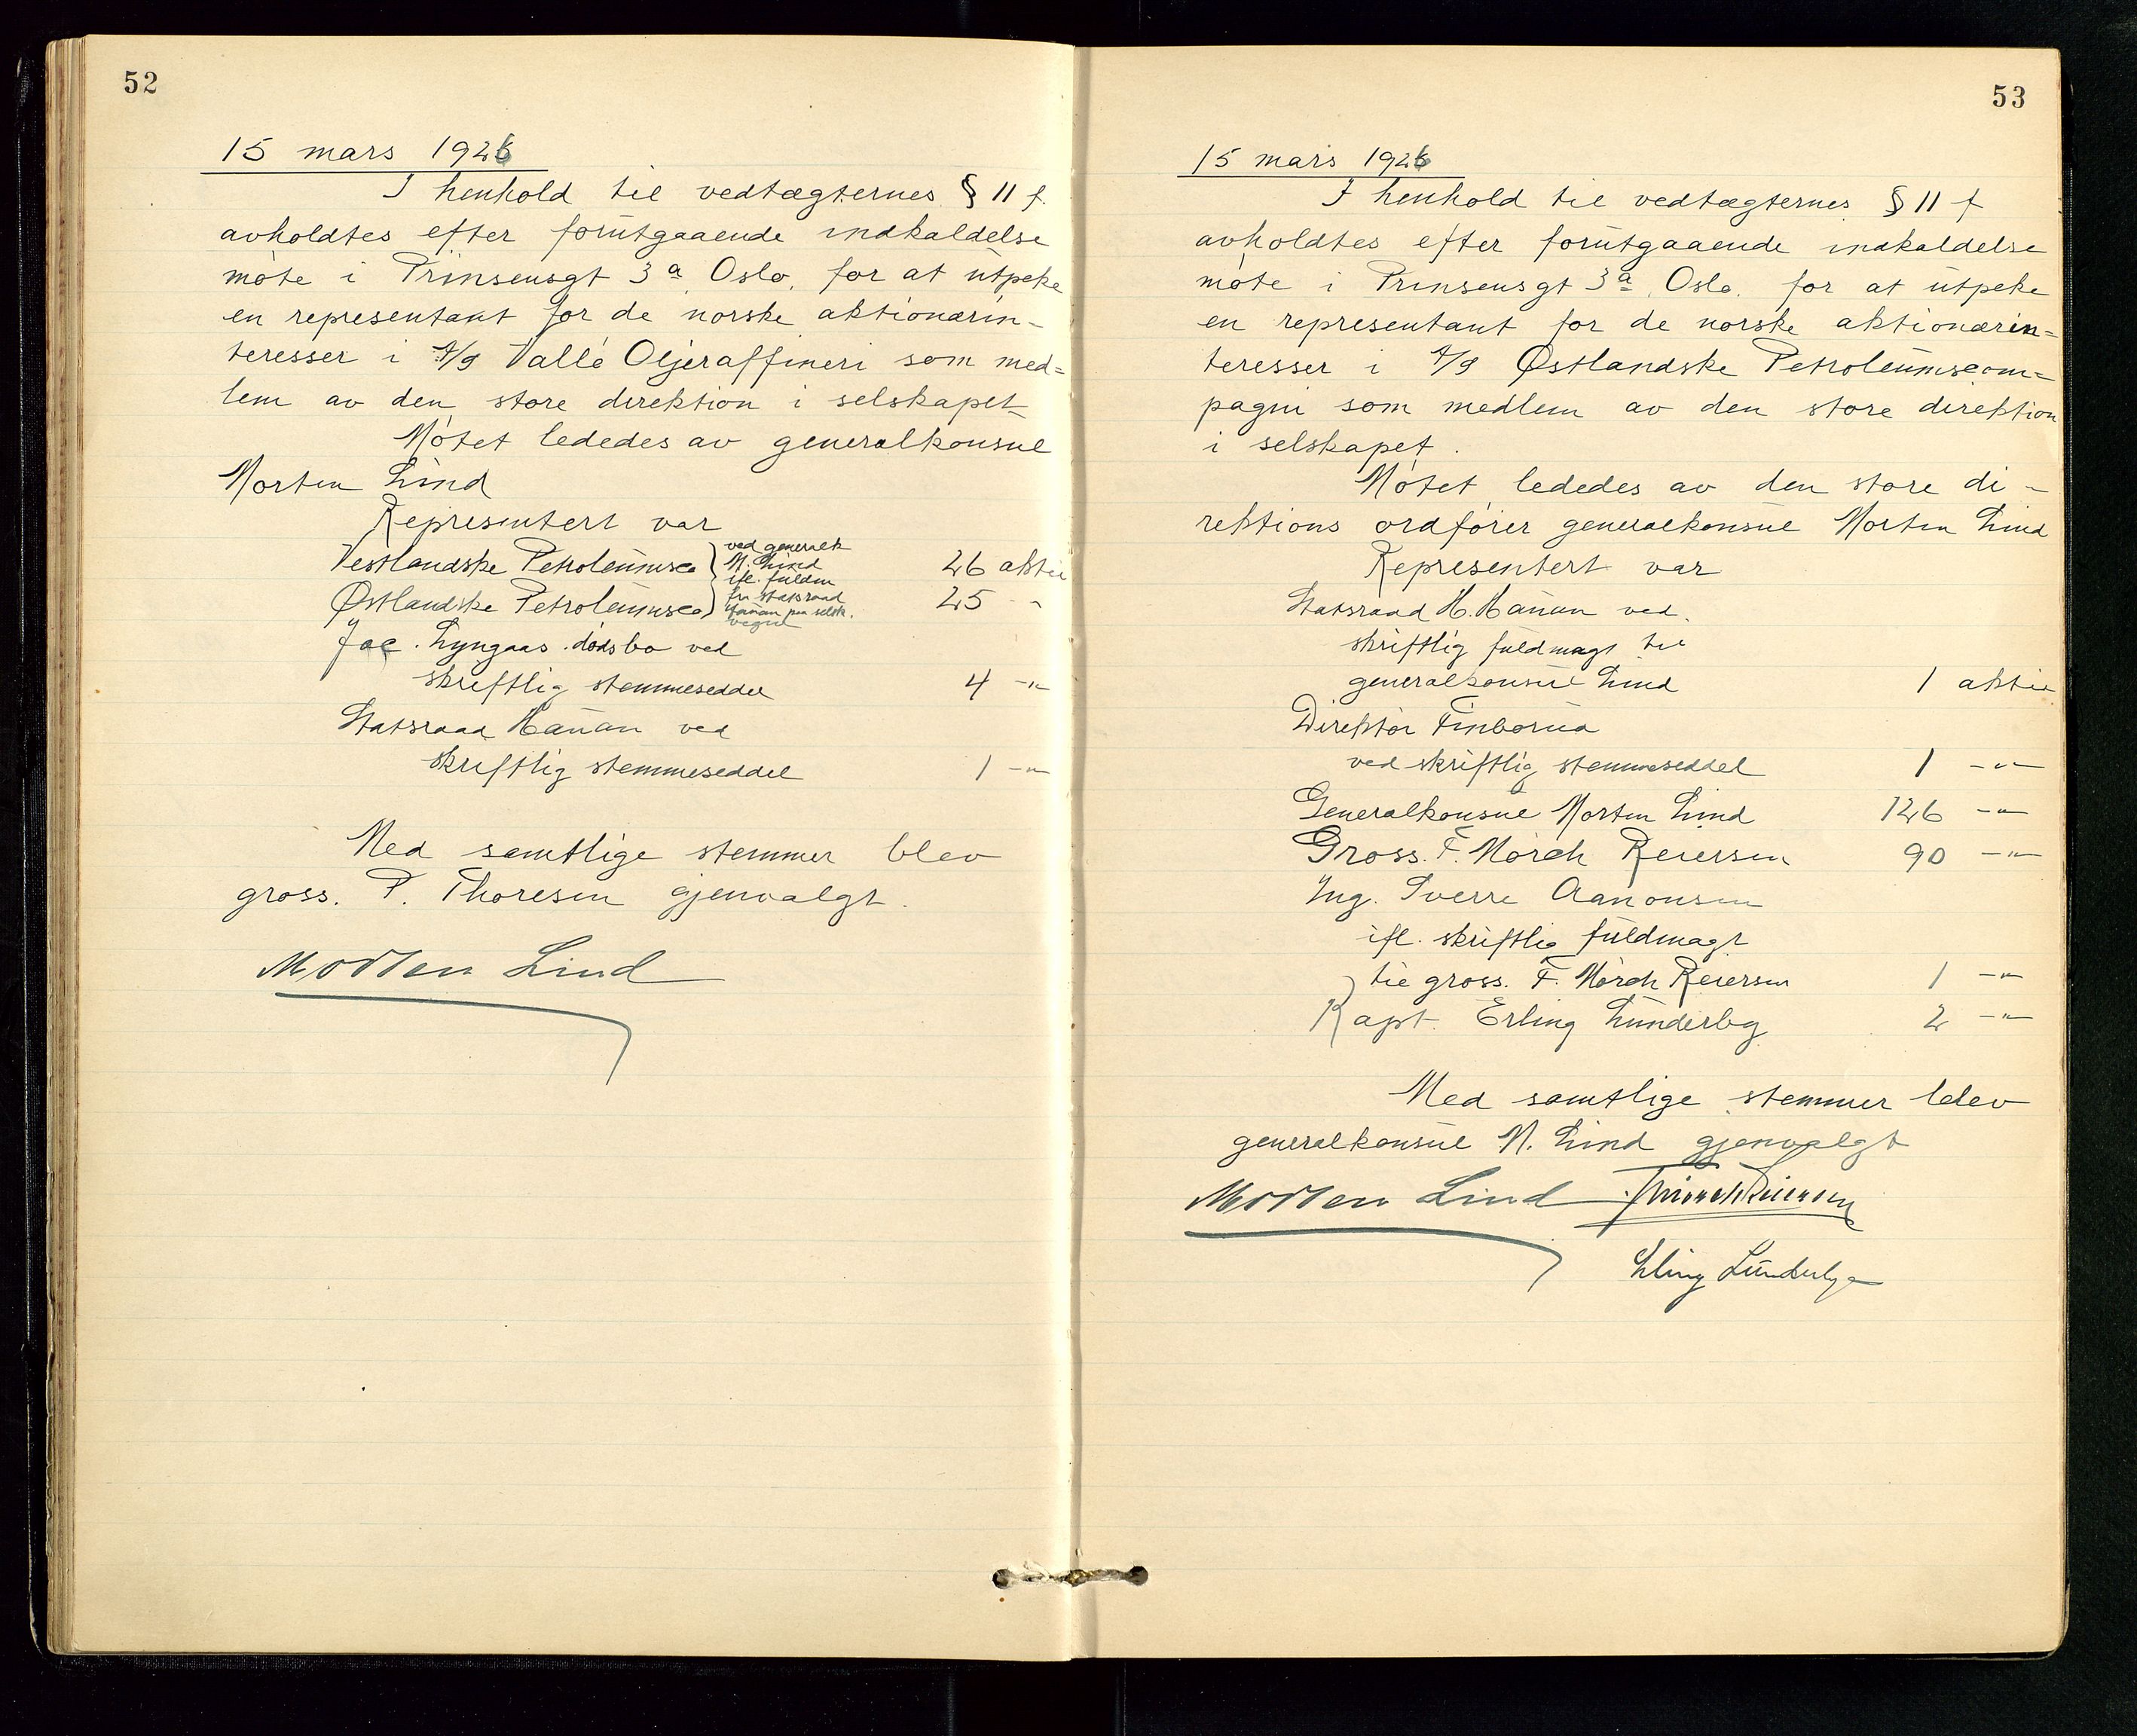 52
15 mars 1926
I henhold til vedtægternes § 11 f.
avholdtes efter forutgaaende indkaldelse
møte i Prinsensgt 3a, Oslo, for at utpeke
en representant for de norske aktionærin-
teresser i A/S Vallø Oljeraffineri som med=
lem av den store direktion i selskapet
Møtet lededes av generalkonsul
Morten Lind
Representert var
Vestlandske Petroleumsco } ved generalk M. Lind 26 aktie
ifl. fuldm
Østlandske Petroleumsco } fra statsraad 25 - "
Hauan paa selsk. vegne
Jac. Lyngaas dødsbo ved
skriftlig stemmeseddel 4 -"-
Statsraad Hauan ved
skriftlig stemmeseddel 1 -"-
Med samtlige stemmer blev
gross. P. Thoresen gjenvalgt.
Morten Lind
53
15 mars 1926
I henhold til vedtægternes § 11 f
avholdtes efter forutgaaende indkaldelse
møte i Prinsensgt 3a, Oslo, for at utpeke
en representant for de norske aktionærin=
teresser i A/S Østlandske Petroleumscom=
pagni som medlem av den store direktion
i selskapet.
Møtet lededes av den store di-
rektions ordfører generalkonsul Morten Lind
Representert var
Statsraad H. Hauan ved.
skriftlig fuldmagt til
generalkonsul Lind 1 aktie
Direktør Finborud
ved skriftlig stemmeseddel 1 -"-
Generalkonsul Morten Lind 126 -"-
Gross. F. Mørch Reiersen 90 -"-
Ing. Sverre Aanonsen
ifl. skriftlig fuldmagt
til gross. F. Mørch Reiersen 1 -"-
Kapt. Erling Lunderby 2 -"-
Med samtlige stemmer blev
generalkonsul M. Lind gjenvalgt
Morten Lind F Mørch Reiersen
Erling Lunderby